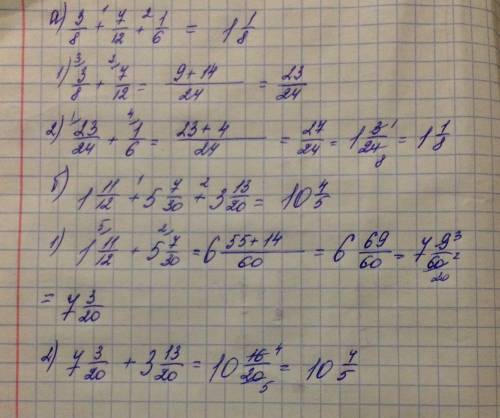 а) 3/8 + 7/12 + 1/6 = 1 1/8
1) 3/8 + 7/12 = (9+14)/24 = 23/24
2) 23/24 + 1/6 = (23+4)/24 = 27/24 = 1 3/24 = 1 1/8
б) 1 11/12 + 5 7/30 + 3 13/20 = 10 4/5
1) 1 11/12 + 5 7/30 = 6 (55+14)/60 = 6 69/60 = 7 9/60
= 7 3/20
2) 7 3/20 + 3 13/20 = 10 16/20 = 10 4/5